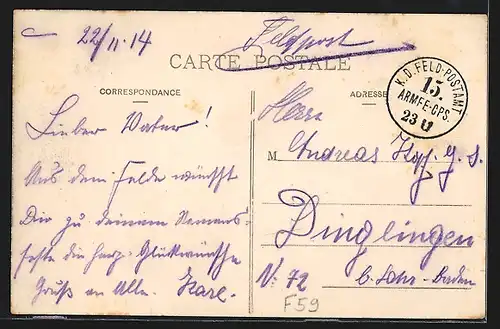 22/11.14
Feldpost
CARTE POSTALE
K.D. FELD-POSTAMT
15.
ARMEE-CPS.
23 11
CORRESPONDANCE
ADRESSE
Lieber Vater!
Aus dem Felde wünscht
Dir zu deinem Namens-
feste die herz. Glückwünsche
Gruß an Alle. Karl.
Herrn
M Andreas
Dinglingen
b. Lahr-Baden
Nr. 72
F59